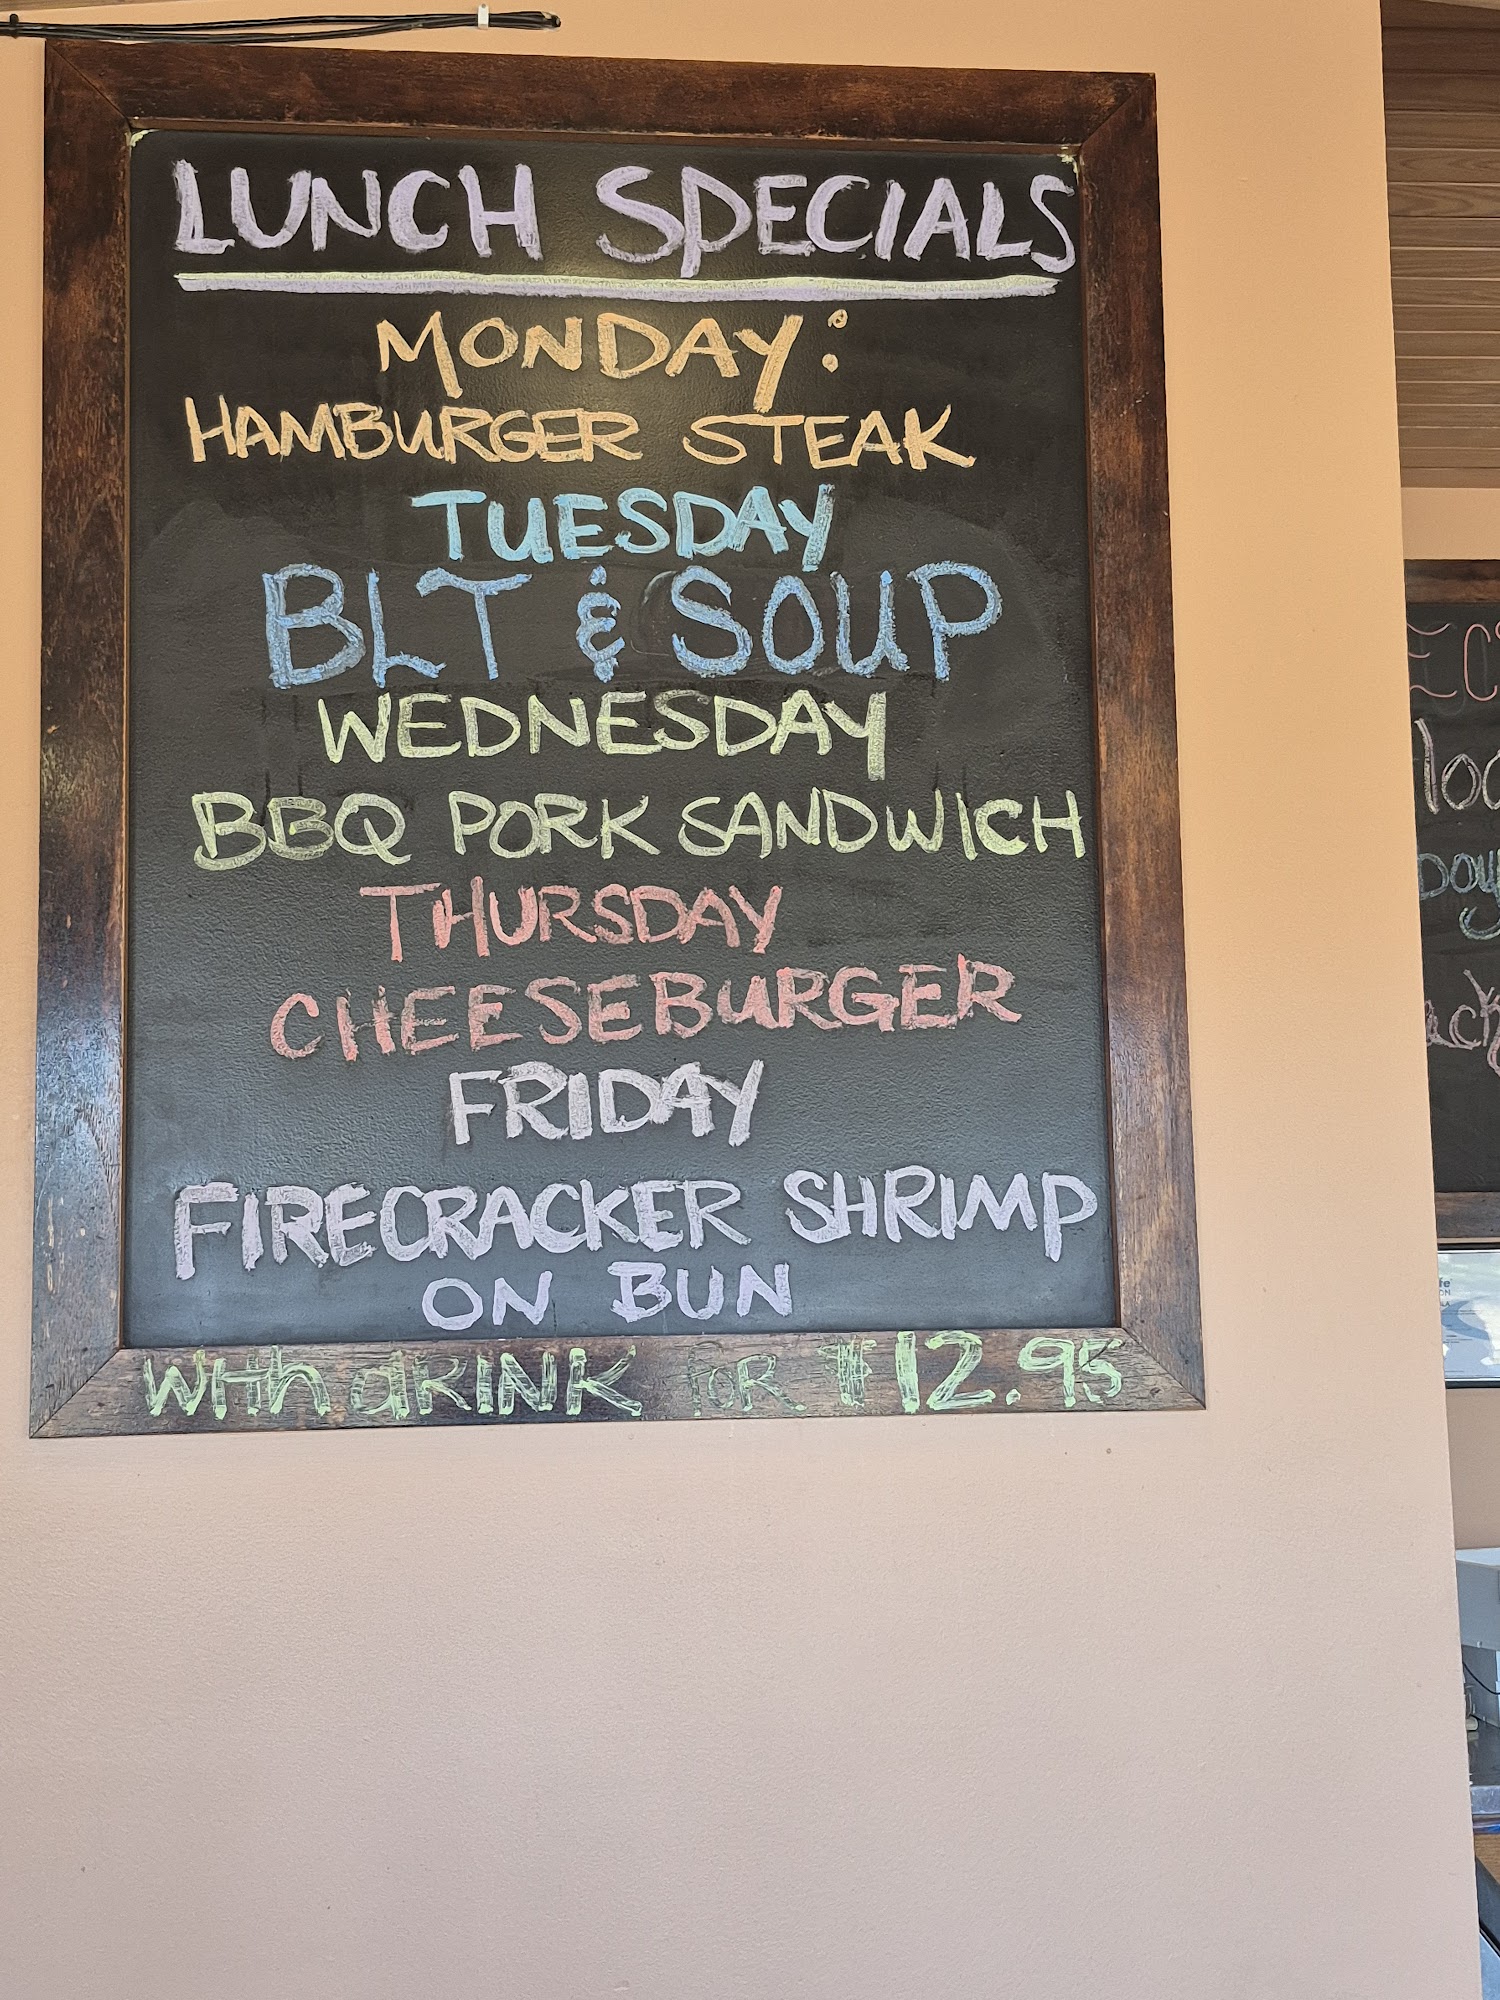 LUNCH SPECIALS
MONDAY:
HAMBURGER STEAK
TUESDAY
BLT & SOUP
WEDNESDAY
BBQ PORK SANDWICH
THURSDAY
CHEESEBURGER
FRIDAY
FIRECRACKER SHRIMP
ON BUN
with dRINK FOR $12.95